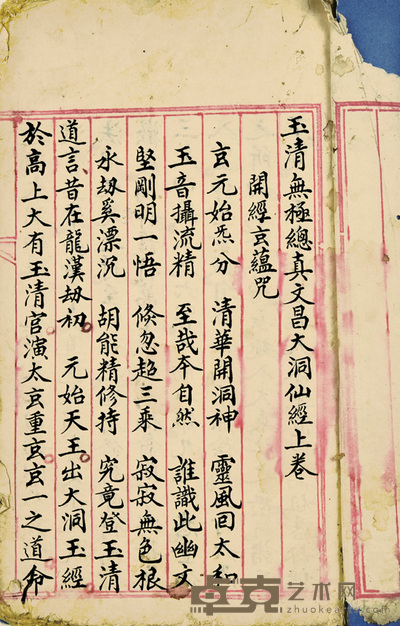 玉清無極總真文昌大洞仙經上卷
開經玄蘊咒
玄元始炁分 清華開洞神 靈風回太和
玉音攝流精 至哉本自然 誰識此幽文
堅剛明一悟 倏忽超三乘 寂寂無色根
永劫奚漂沉 胡能精修持 究竟登玉清
道言昔在龍漢劫初 元始天王出大洞玉經
於高上大有玉清宫演太玄重玄玄一之道命
卓克艺术网
zhuokearts.com